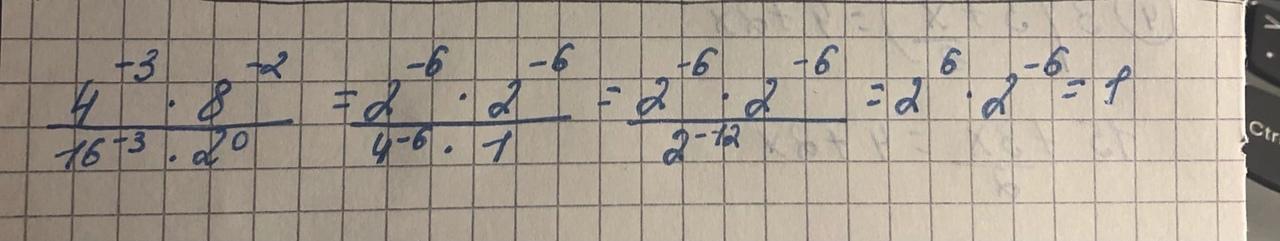 4⁻³ · 8⁻² / 16⁻³ · 2⁰ = 2⁻⁶ · 2⁻⁶ / 4⁻⁶ · 1 = 2⁻⁶ · 2⁻⁶ / 2⁻¹² = 2⁶ · 2⁻⁶ = 1
Ctr